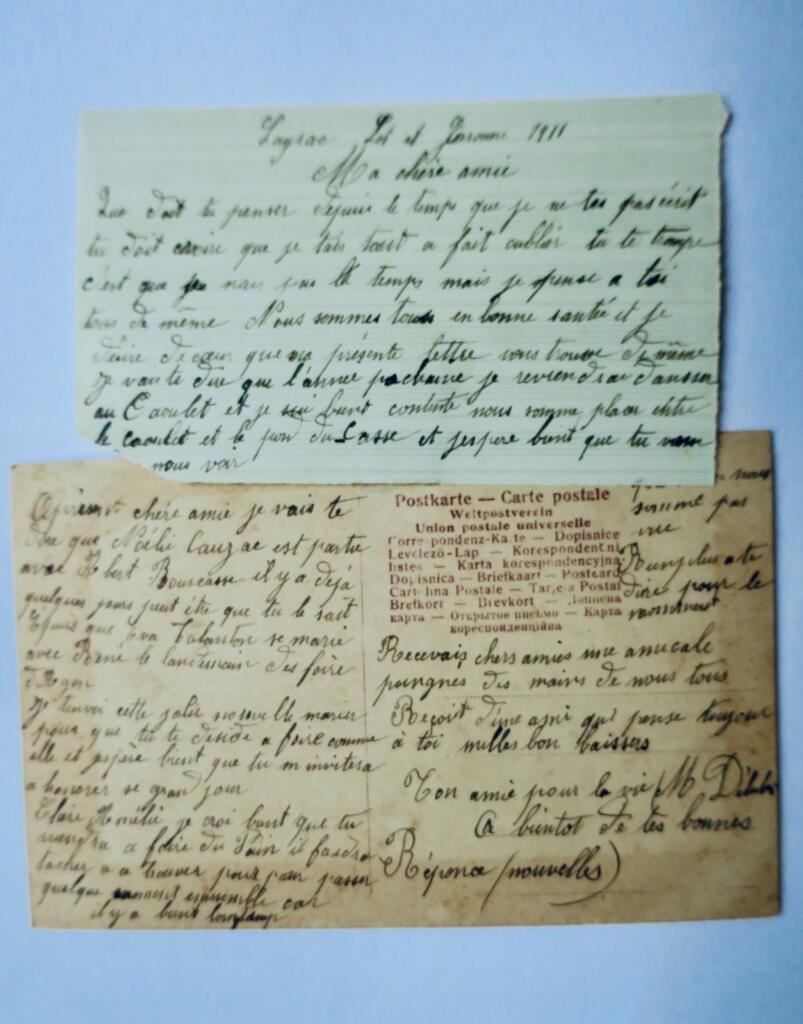 Layrac Lot et Garonne 1911
Ma chère amie
Que doit tu penser depuis le temps que je ne tes pas écrit
tu doit que je tais tout a fait oublier tu te trompe
c'est que je nais pas le temps mais je pense a toi
tous de même Nous sommes tous en bonne santé et je
désire de cœur que ma présente lettre vous trouve de même
Je vais te dire que l'année prochaine je reviendrai dansser
au Caoulet et je sui bient contente nous somme placer entre
le caoulet et le pon du Lasse et jespere bient que tu
nous voir
Apresent chère amie je vais te
dire que Noélie Cauzac est partie
avec Albert Bourcasse il y a déjà
quelques jours peut être que tu le sait
Depuis que Eva se marie
avec René le landemain des foire
d'Agen
Je tenvoi cette jolie nouvelle
pour que tu te deside a faire comme
elle et espère bient que tu m'invitera
a honorer se grand jour
Claire Amélie je croi bient que tu
viendra a foire du il faudra
tacher a trouver pour passer
quelque moment enssemble car
il y a bient lontemp
Postkarte — Carte postale
Weltpostverein
Union postale universelle
Correspondenz-Karte — Dopisnice
Levelező-Lap — Korespondentní
lístek — Karta korespondencyjna
Dopisnica — Briefkaart — Postcard
Cartolina Postale — Tarjeta Postal
Brefkort — Brevkort — Dopisnica
карта — Открытое письмо — Карта
кореспонденційна
que nous
somme pas
vue
Rien plus a te
dire pour le
momment
Recevais chers amies une amicale
poingnes des mains de nous tous
Reçoit d'une ami qui pense toujour
à toi milles bon baissers
Ton amie pour la vie M
A bientot de tes bonnes
Réponce (nouvelles)